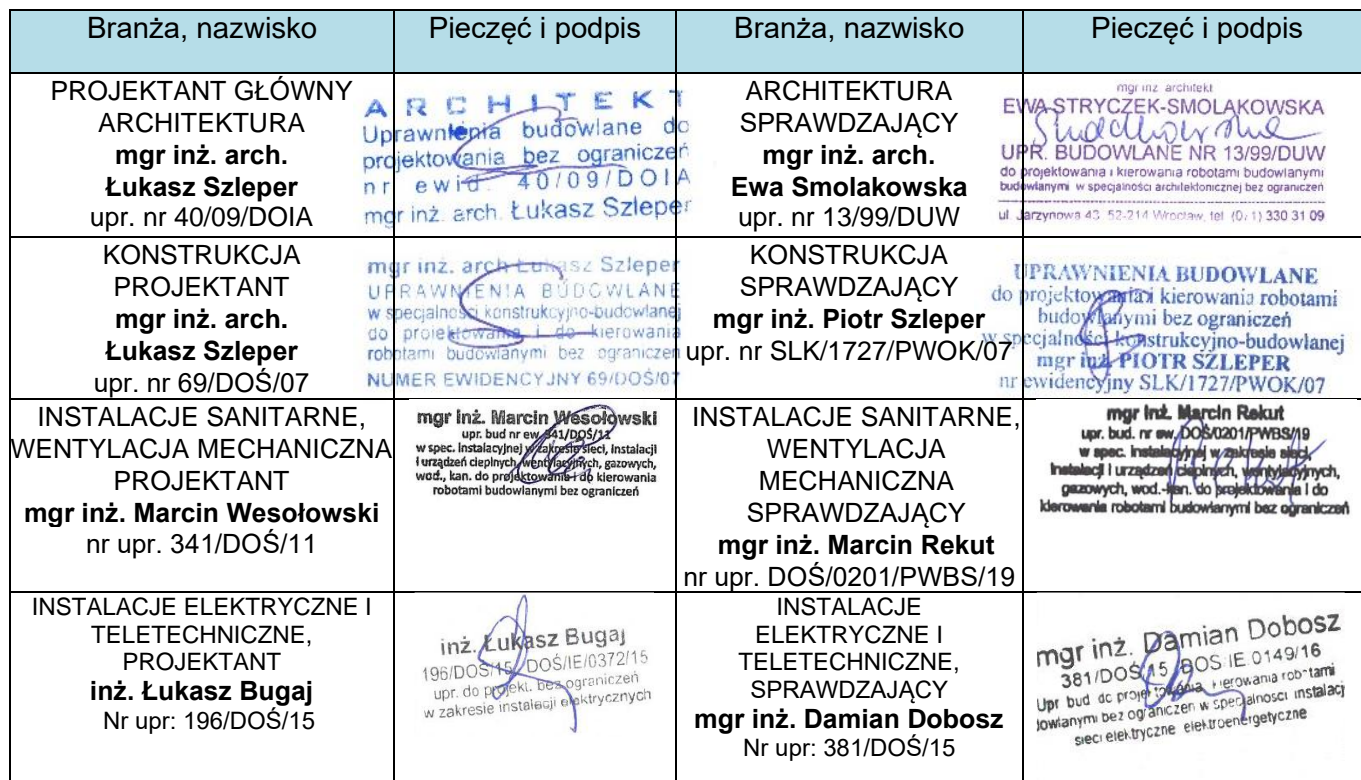 Branża, nazwisko
Pieczęć i podpis
Branża, nazwisko
Pieczęć i podpis
PROJEKTANT GŁÓWNY
ARCHITEKTURA
mgr inż. arch.
Łukasz Szleper
upr. nr 40/09/DOIA
ARCHITEKT
Uprawnienia budowlane do
projektowania bez ograniczeń
nr ewid. 40/09/DOIA
mgr inż. arch. Łukasz Szleper
ARCHITEKTURA
SPRAWDZAJĄCY
mgr inż. arch.
Ewa Smolakowska
upr. nr 13/99/DUW
mgr inż. architekt
EWA STRYCZEK-SMOLAKOWSKA
UPR. BUDOWLANE NR 13/99/DUW
do projektowania i kierowania robotami budowlanymi
budowlanymi w specjalności architektonicznej bez ograniczeń
ul. Jarzynowa 43, 52-214 Wrocław, tel. (0/1) 330 31 09
KONSTRUKCJA
PROJEKTANT
mgr inż. arch.
Łukasz Szleper
upr. nr 69/DOŚ/07
mgr inż. arch Łukasz Szleper
UPRAWNIENIA BUDOWLANE
w specjalności konstrukcyjno-budowlanej
do projektowania i do kierowania
robotami budowlanymi bez ograniczeń
NUMER EWIDENCYJNY 69/DOŚ/07
KONSTRUKCJA
SPRAWDZAJĄCY
mgr inż. Piotr Szleper
upr. nr SLK/1727/PWOK/07
UPRAWNIENIA BUDOWLANE
do projektowania i kierowania robotami
budowlanymi bez ograniczeń
w specjalności konstrukcyjno-budowlanej
mgr inż. PIOTR SZLEPER
nr ewidencyjny SLK/1727/PWOK/07
INSTALACJE SANITARNE,
WENTYLACJA MECHANICZNA
PROJEKTANT
mgr inż. Marcin Wesołowski
nr upr. 341/DOŚ/11
mgr inż. Marcin Wesołowski
upr. bud nr ew. 341/DOŚ/11
w spec. instalacyjnej w zakresie sieci, instalacji
i urządzeń cieplnych, wentylacyjnych, gazowych,
wod., kan. do projektowania i do kierowania
robotami budowlanymi bez ograniczeń
INSTALACJE SANITARNE,
WENTYLACJA
MECHANICZNA
SPRAWDZAJĄCY
mgr inż. Marcin Rekut
nr upr. DOŚ/0201/PWBS/19
mgr inż. Marcin Rekut
upr. bud. nr ew. DOŚ/0201/PWBS/19
w spec. instalacyjnej w zakresie sieci,
instalacji i urządzeń cieplnych, wentylacyjnych,
gazowych, wod.-kan. do projektowania i do
kierowania robotami budowlanymi bez ograniczeń
INSTALACJE ELEKTRYCZNE I
TELETECHNICZNE,
PROJEKTANT
inż. Łukasz Bugaj
Nr upr: 196/DOŚ/15
inż. Łukasz Bugaj
196/DOŚ/15 DOŚ/IE/0372/15
upr. do projekt. bez ograniczeń
w zakresie instalacji elektrycznych
INSTALACJE
ELEKTRYCZNE I
TELETECHNICZNE,
SPRAWDZAJĄCY
mgr inż. Damian Dobosz
Nr upr: 381/DOŚ/15
mgr inż. Damian Dobosz
381/DOŚ/15 DOŚ/IE/0149/16
Upr bud do projektowania kierowania robotami
dowlanymi bez ograniczeń w specjalności instalacj
sieci elektryczne elektroenergetyczne